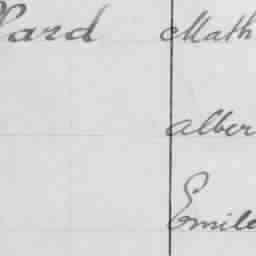 lard Math
Alber
Emile